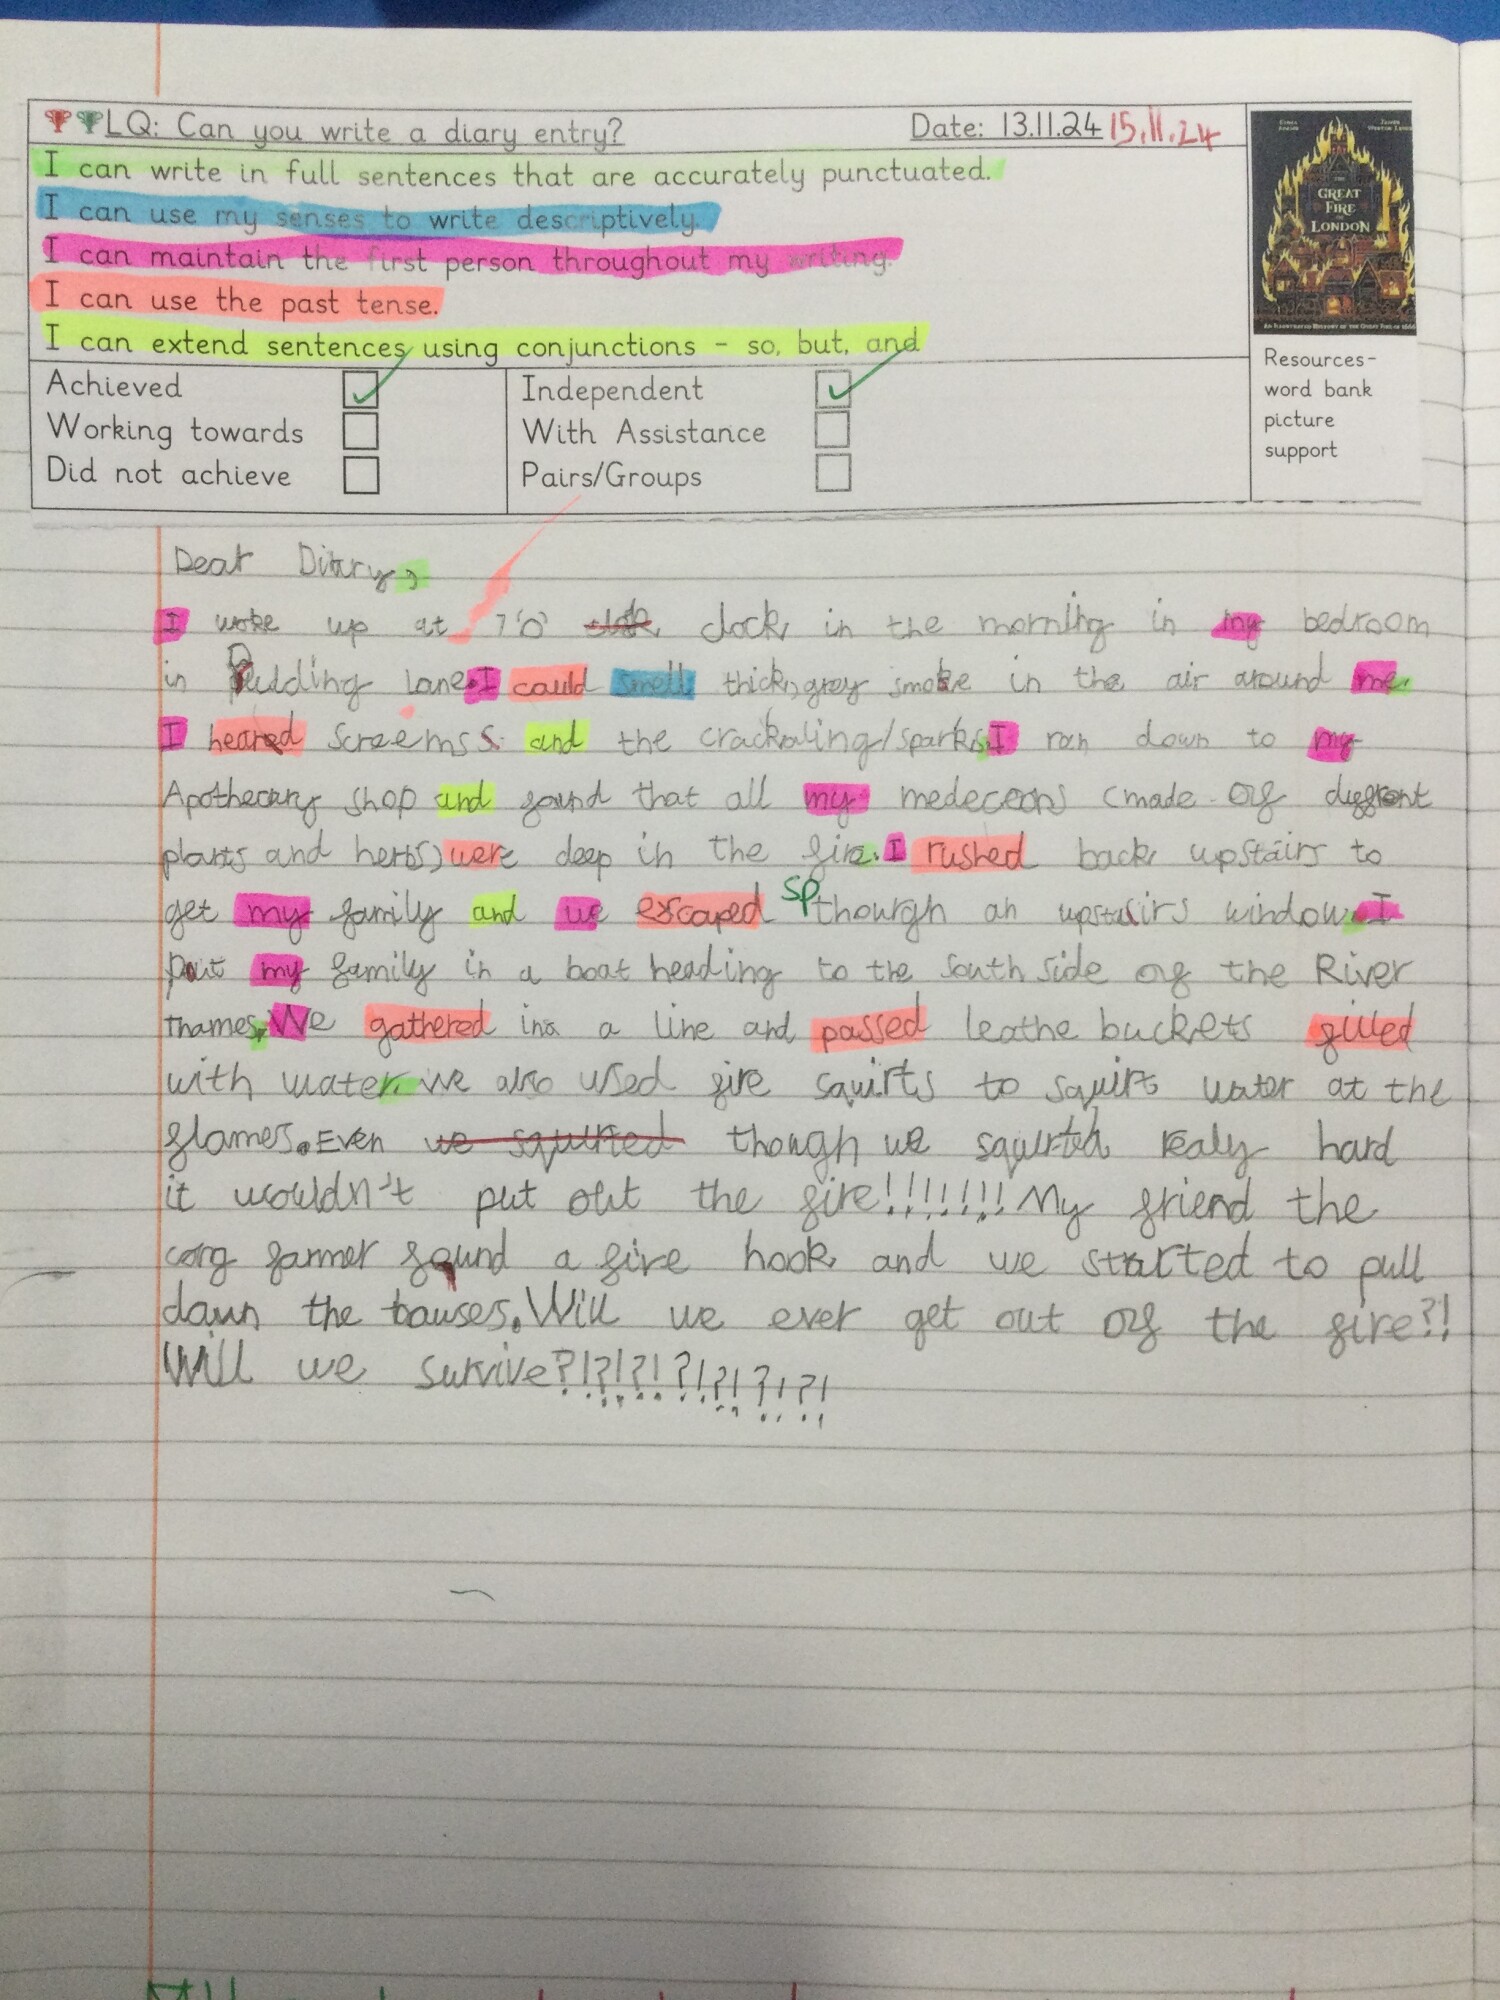 LQ: Can you write a diary entry? Date: 13.11.24 15.11.24
I can write in full sentences that are accurately punctuated.
I can use my senses to write descriptively.
I can maintain the first person throughout my writing.
I can use the past tense.
I can extend sentences using conjunctions - so, but, and
Achieved
Independent
Working towards
With Assistance
Did not achieve
Pairs/Groups
THE
GREAT
FIRE
LONDON
Resources-
word bank
picture
support
Dear Diary,
I woke up at 7'O' clock in the morning in my bedroom
in Pudding lane. I could smell thick, grey smoke in the air around me.
I heared screems and the crackaling/sparks. I ran down to my
Apothecary shop and found that all my medeceons (made of diffront
plants and herbs) were deep in the fire. I rushed back upstairs to
get my family and we escaped sp thourgh an upstairs window. I
put my family in a boat heading to the South side of the River
Thames. We gathered in a line and passed leathe buckets filled
with water. We also used fire squirts to squirt water at the
flames. Even we squirted though we squirted realy hard
it wouldn't put out the fire!!!!!!! My friend the
farmer found a fire hook and we started to pull
down the houses. Will we ever get out of the fire?!
Will we survive?!?!?!?!?!?!?!